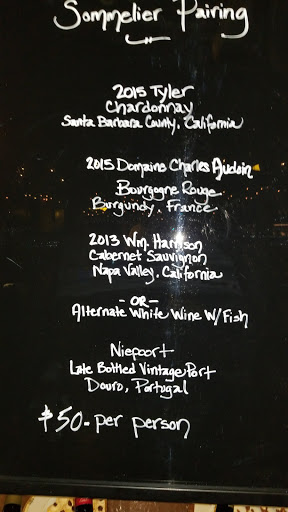 Sommelier Pairing
2015 Tyler
Chardonnay
Santa Barbara County, California
2015 Domaine Charles Audoin
Bourgogne Rouge
Burgundy, France
2013 Wm. Harrison
Cabernet Sauvignon
Napa Valley, California
- OR -
Alternate White Wine W/ Fish
Niepoort
Late Bottled Vintage Port
Douro, Portugal
$50.- per person